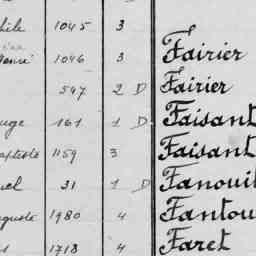 hile 1045 3
1046 3 Fairier
547 2 D Fairier
uge 161 1 D Faisant
aptiste 1159 3 Faisant
uel 31 1 D Fanouil
guste 1980 4 Fantou
1718 4 Faret